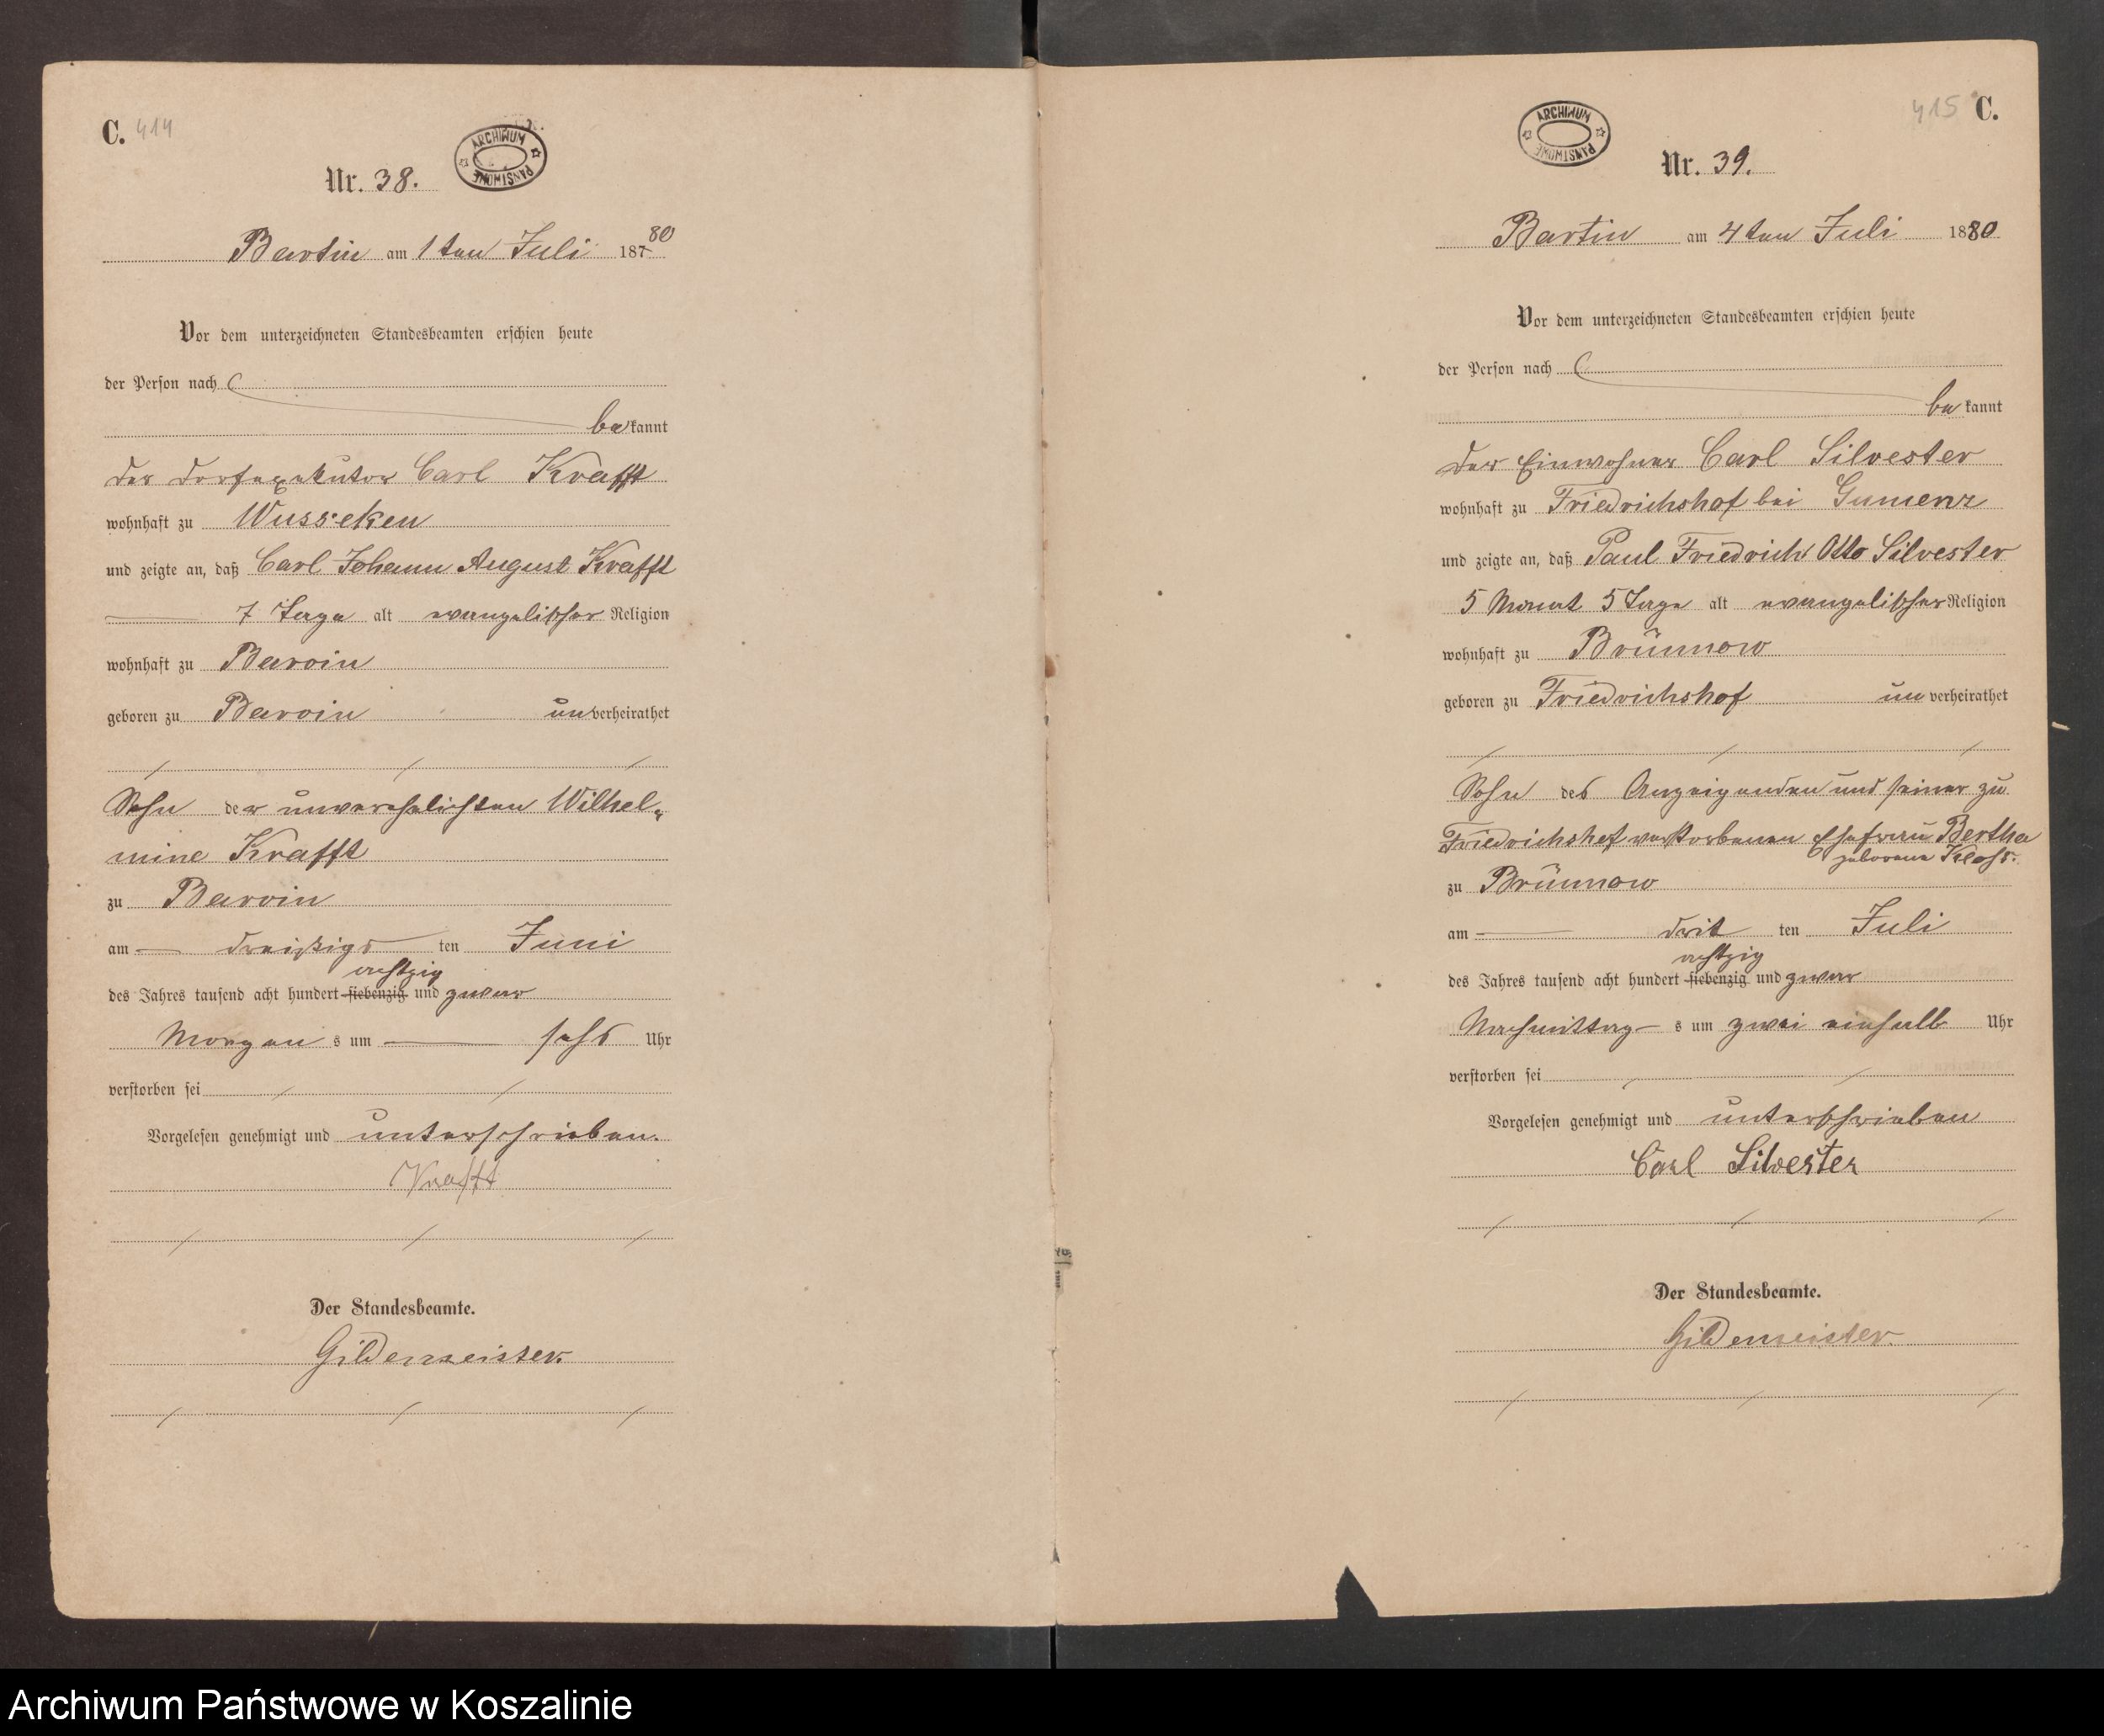 C. 414
ARCHIWUM PAŃSTWOWE
Nr. 38.
Bartin am 1ten Juli 187 80
Vor dem unterzeichneten Standesbeamten erschien heute
der Person nach
bekannt
der Dorfexekutor Carl Krafft
wohnhaft zu Wusseken
und zeigte an, daß Carl Johann August Krafft
7 Tage alt evangelischer Religion
wohnhaft zu Barvin
geboren zu Barvin unverheirathet
Sohn der unverehelichten Wilhel-
mine Krafft
zu Barvin
am dreißigs ten Juni
achtzig
des Jahres tausend acht hundert siebenzig und zwar
Morgen s um sechs Uhr
verstorben sei
Vorgelesen genehmigt und unterschrieben.
Krafft
Der Standesbeamte.
Gildemeister.
415 C.
ARCHIWUM PAŃSTWOWE
Nr. 39.
Bartin am 4ten Juli 1880
Vor dem unterzeichneten Standesbeamten erschien heute
der Person nach
bekannt
der Einwohner Carl Silvester
wohnhaft zu Friedrichshof bei Gumenz
und zeigte an, daß Paul Friedrich Otto Silvester
5 Monat 5 Tage alt evangelischer Religion
wohnhaft zu Brünnow
geboren zu Friedrichshof unverheirathet
Sohn des Anzeigenden und seiner zu
Friedrichshof verstorbenen Ehefrau Bertha
geborene
zu Brünnow
am drit ten Juli
achtzig
des Jahres tausend acht hundert siebenzig und zwar
Nachmittag s um zwei einhalb Uhr
verstorben sei
Vorgelesen genehmigt und unterschrieben
Carl Silvester
Der Standesbeamte.
Gildemeister.
Archiwum Państwowe w Koszalinie